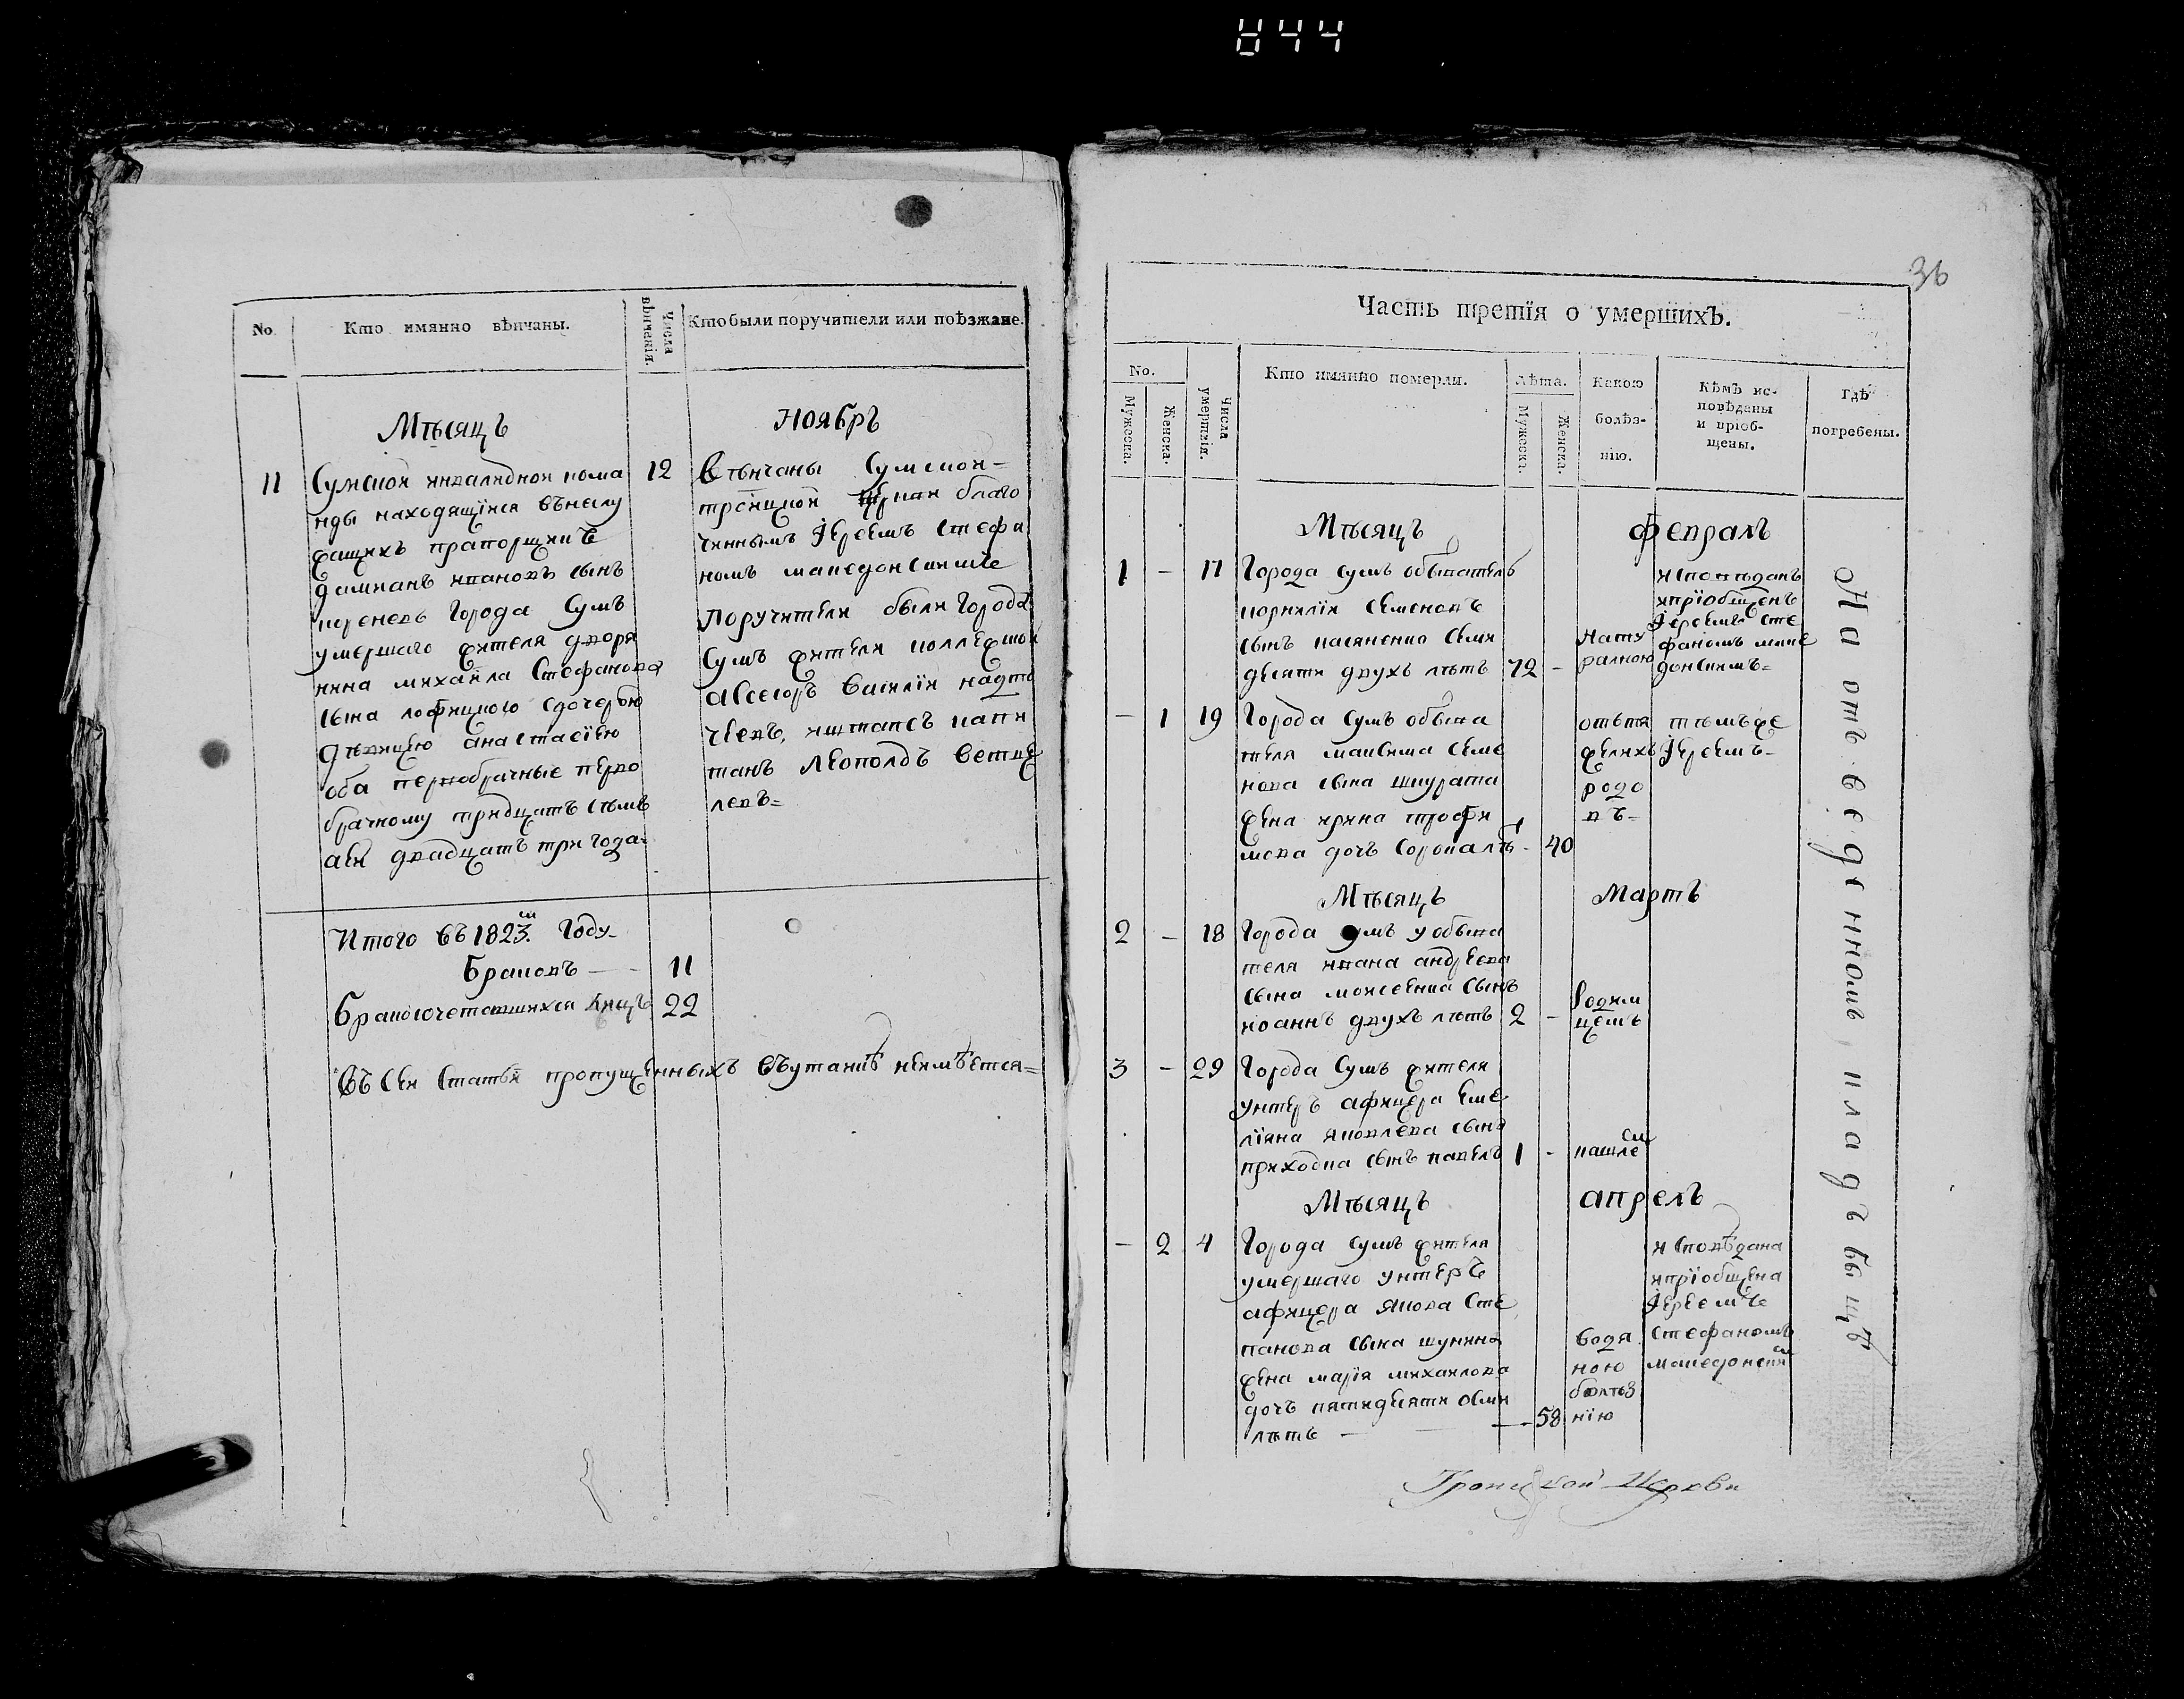 844
No.
Кто имянно вѣнчаны.
Числа вѣнчанія.
Кто были поручители или поѣзжане.
Мѣсяцъ
ноябръ
11
Сумской инвалидной кома
нды находящійся въ
прапорщикъ
Дамианъ ивановъ сынъ
города Сумъ
умершаго жителя дворя
нина михайла Стефанова
сына сдочерью
дѣвицею анастасіею
оба первобрачные перво
брачному тридцать сѣмъ
аей двадцать три года-
12
Вѣнчаны Сумской-
троицкой благо
чиннымъ Іереемъ стефа
номъ македонскимъ
поручители были города
Сумъ жители коллежской
асесоръ василій
штапсъ капи
танъ леополдъ
левъ=
Итого въ 1823м. году-
Браковъ — - 11
Бракосочетавшихся лицъ 22
Въ сей статьи пропущенныхъ въутаикѣ неимѣется=
36
Часть третія о умершихъ.
No.
Мужеска.
Женска.
Числа умертвія.
Кто имянно померли.
Лѣта.
Мужеска.
Женска.
Какою болѣз-
нію.
Кѣмъ ис-
повѣданы
и пріоб-
щены.
Гдѣ
погребены.
Мѣсяцъ
февралъ
1 — 17
Города сумъ обыватель
корнилій семеновъ
сынъ касяненко семи
десяти двухъ лѣтъ 72 -
нату
ралною
исповѣданъ
ипріобщенъ
Іереемъ сте
фаномъ маке
донскимъ=
— 1 19
Города сумъ обыва
теля максима семе
нова сына шкурата
жена ирина трофи
мова дочь сорокалѣт- 40
отътя
желихъ
родо
въ-
тѣмъже
Іереемъ-
Мѣсяцъ
мартъ
2 — 18
Города сумъ у обыва
теля ивана андреева
сына моисеенка сынъ
иоаннъ двухъ лѣтъ 2 -
Родим
цемъ
3 - 29
Города Сумъ жителя
унтеръ афицера еме
ліяна яковлева сына
приходка сынъ павелъ 1 -
кашлемъ
Мѣсяцъ
апрелъ
— 2 4
Города сумъ жителя
умершаго унтеръ
афицера якова сте
панова сына шунина
жена марія михаилова
дочь пятидесяти осми
лѣтъ — — - 58
водя
ною
болѣз
нію
исповѣдана
ипріобщена
Іереемъ
стефаномъ
македонским
На отъведенномъ кладъбыщѣ
Троицкой Церкви